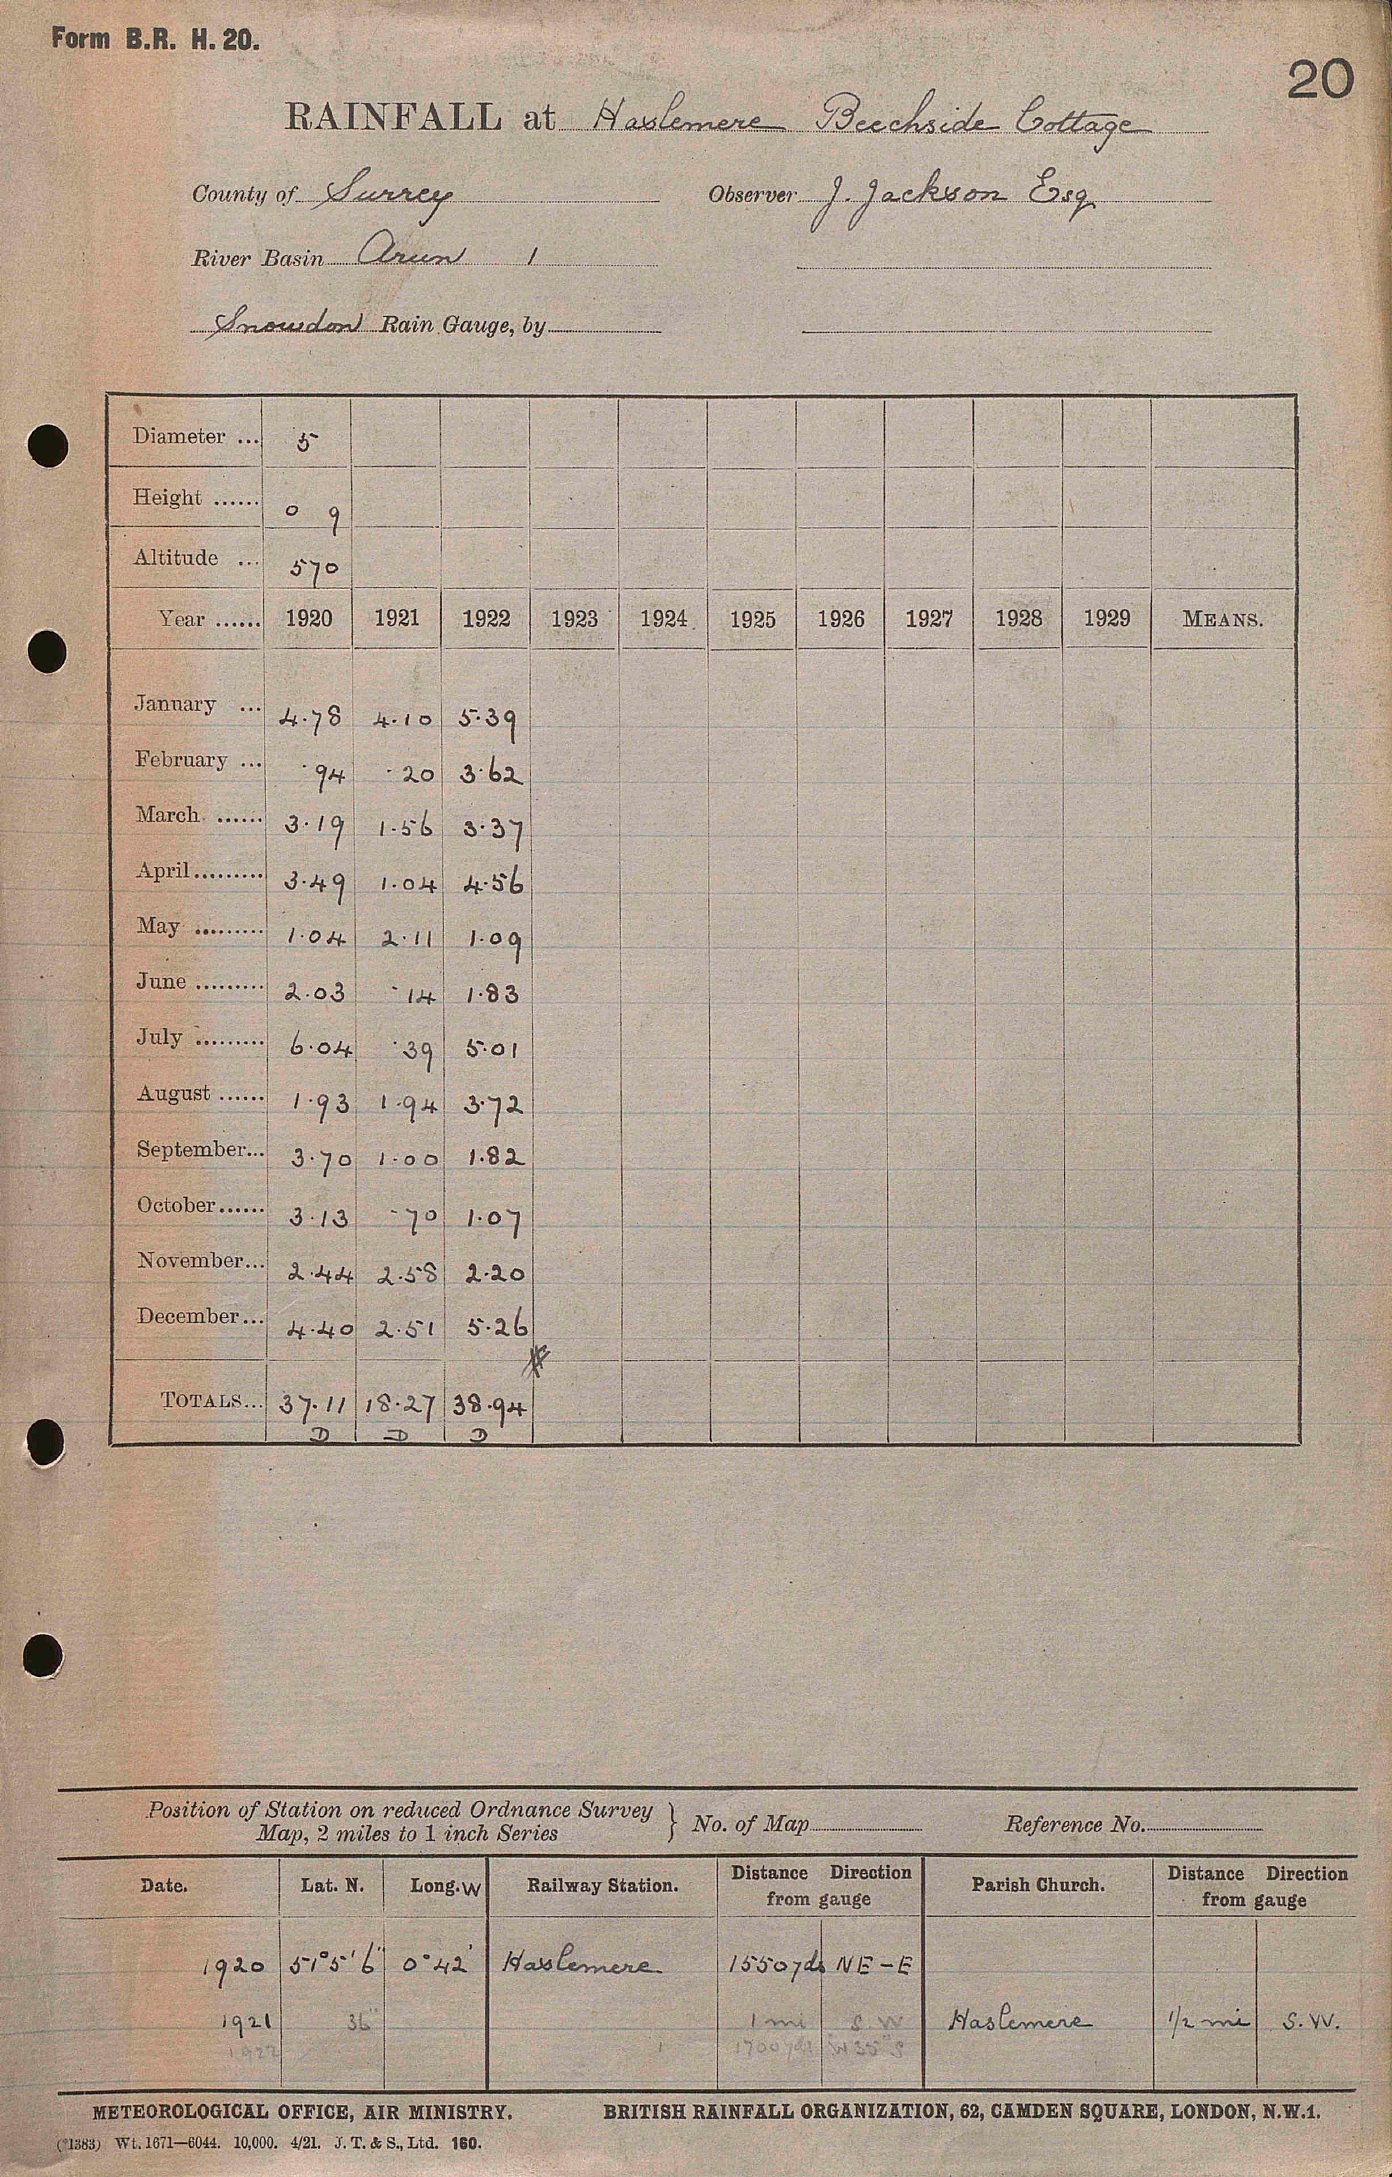 Form B.R. H. 20.
20
RAINFALL at Haslemere Beechside Cottage
County of Surrey Observer J. Jackson Esq
River Basin Arun 1
Snowdon Rain Gauge, by
Diameter ... 5
Height ...... 0 9
Altitude ... 570
Year ...... 1920 1921 1922 1923 1924 1925 1926 1927 1928 1929 MEANS.
January ... 4.78 4.10 5.39
February ... .94 .20 3.62
March ...... 3.19 1.56 3.37
April ......... 3.49 1.04 4.56
May ......... 1.04 2.11 1.09
June ......... 2.03 .14 1.83
July ......... 6.04 .39 5.01
August ...... 1.93 1.94 3.72
September... 3.70 1.00 1.82
October...... 3.13 .70 1.07
November... 2.44 2.58 2.20
December... 4.40 2.51 5.26
TOTALS... 37.11 18.27 38.94
D D D
Position of Station on reduced Ordnance Survey Map, 2 miles to 1 inch Series } No. of Map Reference No.
Date. Lat. N. Long. W Railway Station. Distance Direction from gauge Parish Church. Distance Direction from gauge
1920 51° 5' 6" 0° 42' Haslemere 1550 yds NE-E
1921 36" 1 mi S.W Haslemere 1/2 mi S.W.
1922 1700 yds W 35° S
METEOROLOGICAL OFFICE, AIR MINISTRY. BRITISH RAINFALL ORGANIZATION, 62, CAMDEN SQUARE, LONDON, N.W.1.
(*1383) Wt. 1671—6044. 10,000. 4/21. J. T. & S., Ltd. 160.